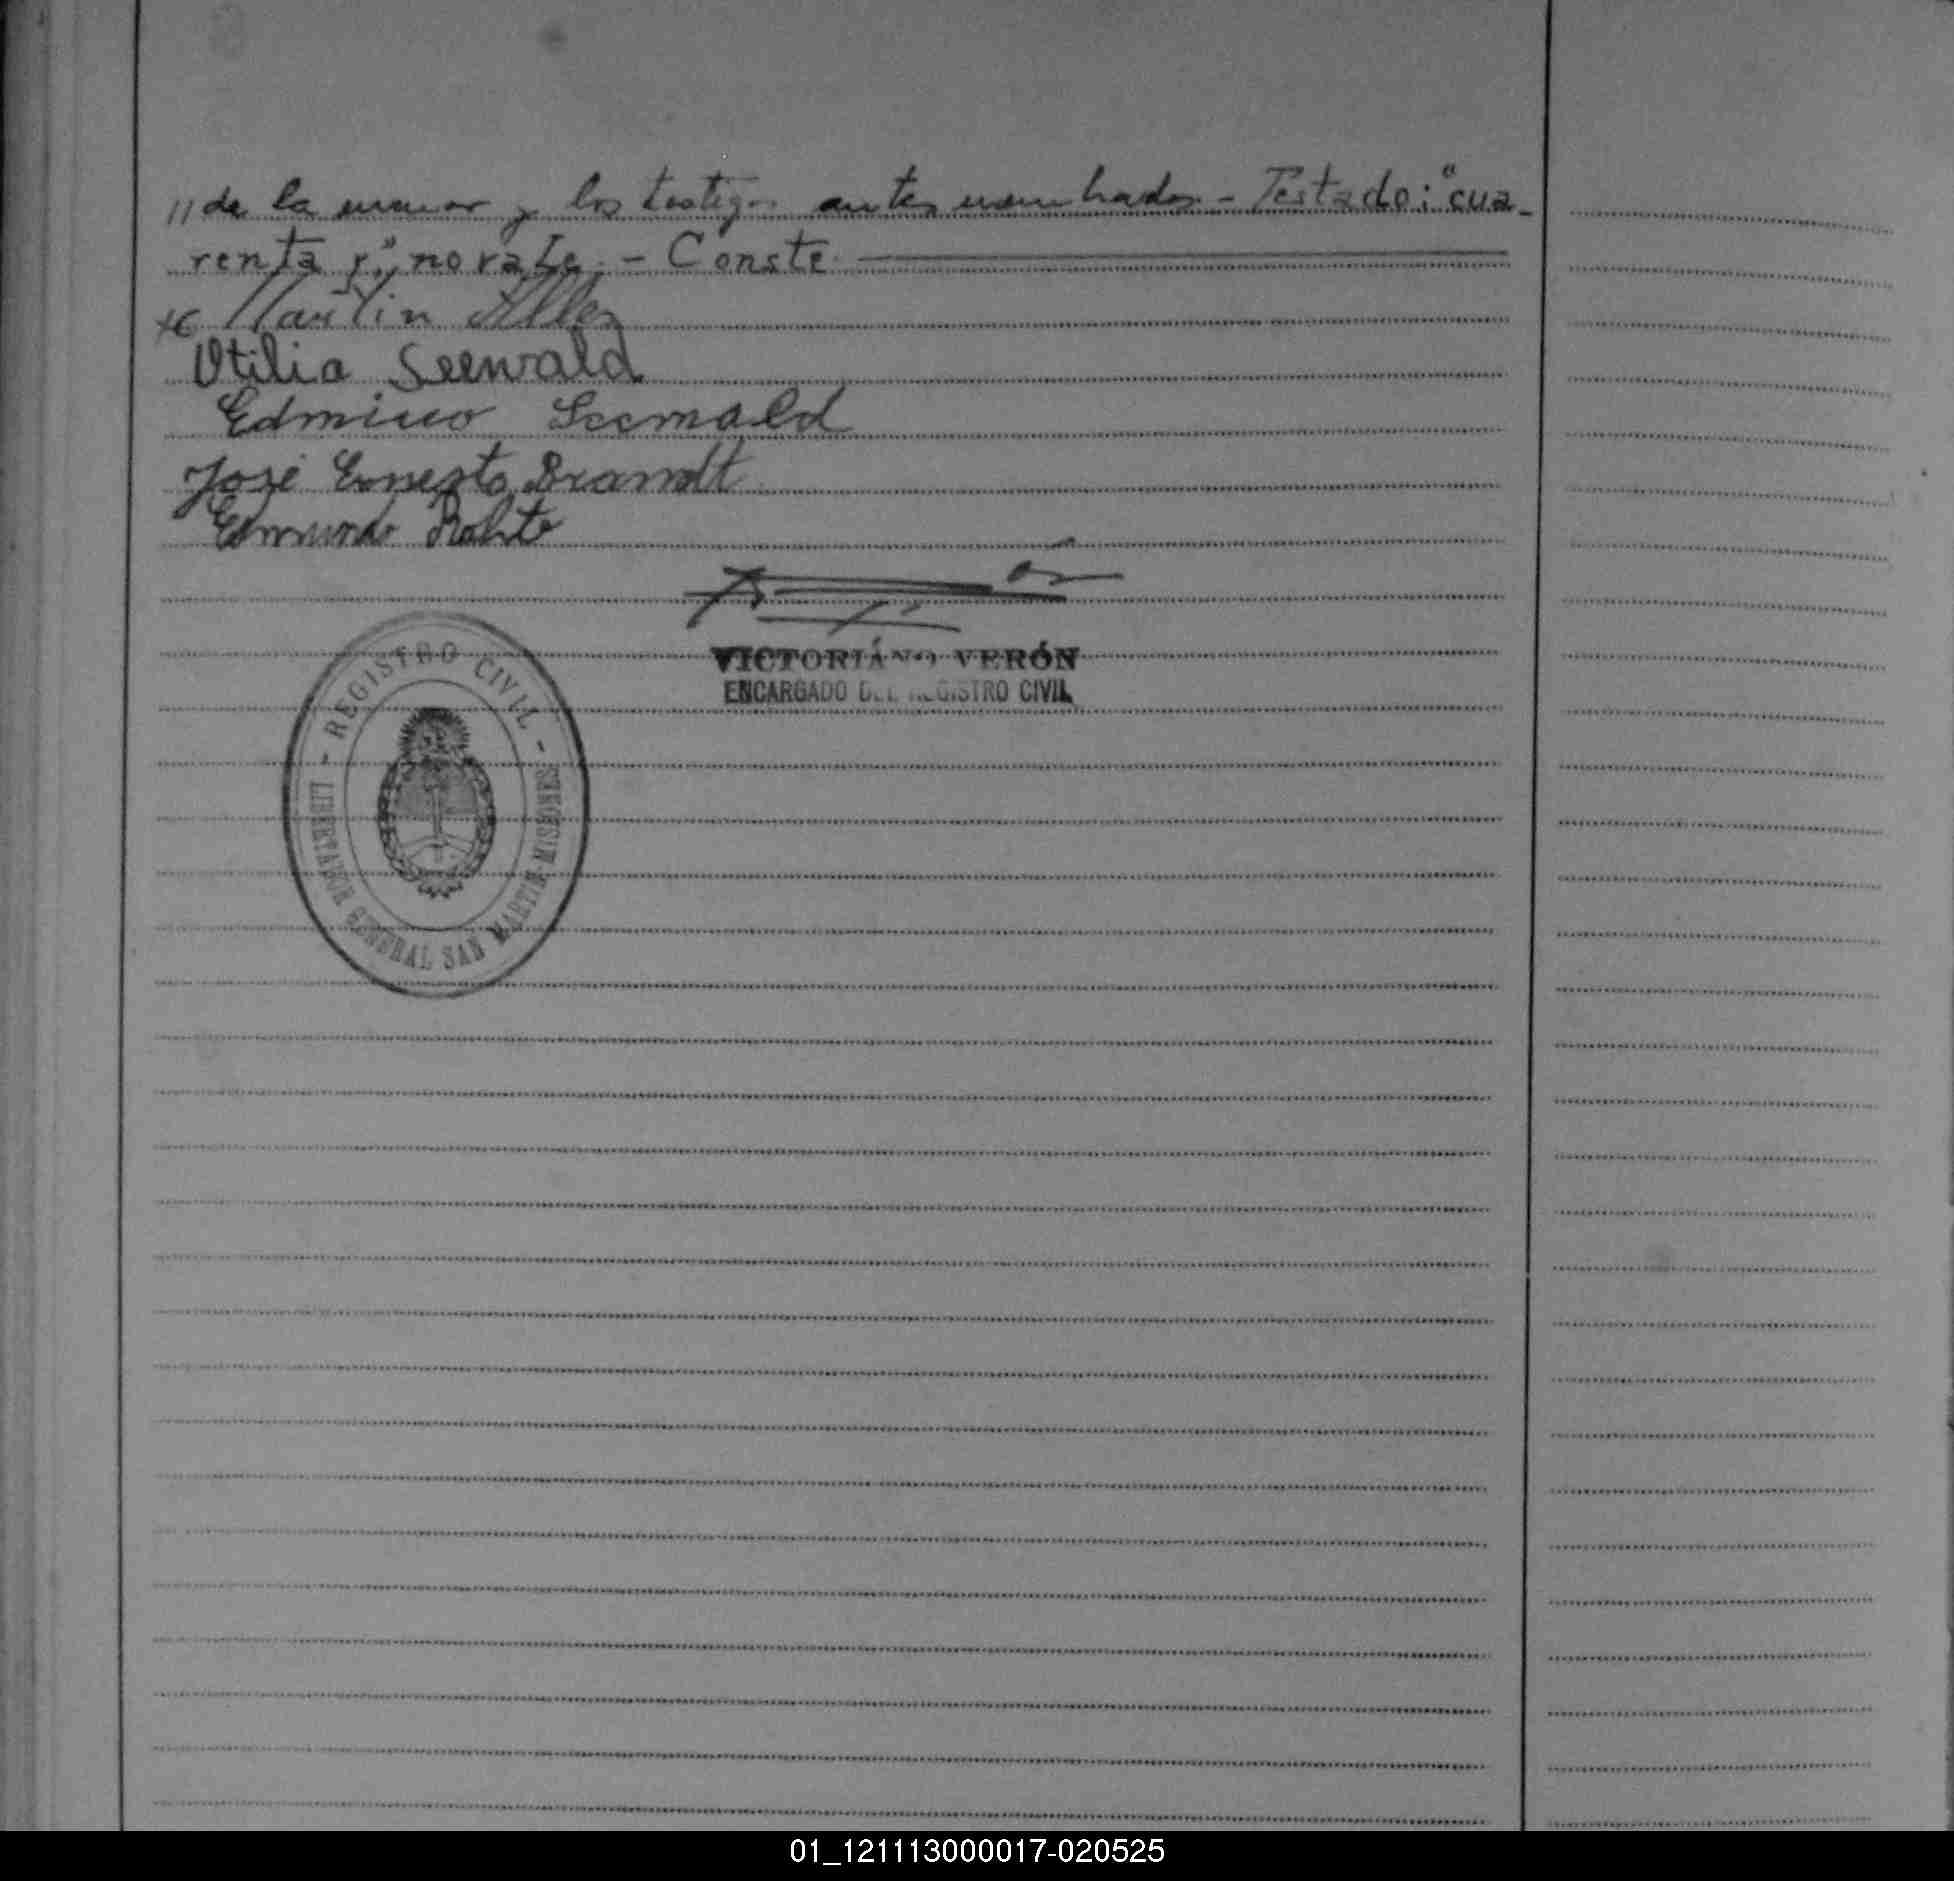 // de la menor y los testigos antes nombrados - Testado: "cua-
renta y", no vale. - Conste
Martin Alles
Otilia Seewald
Edmiuo Seewald
José Ernesto Brandt
Edmundo Rohte
VICTORIANO VERÓN
ENCARGADO DEL REGISTRO CIVIL
- REGISTRO CIVIL -
LIBERTADOR GENERAL SAN MARTIN MISIONES
01_121113000017-020525